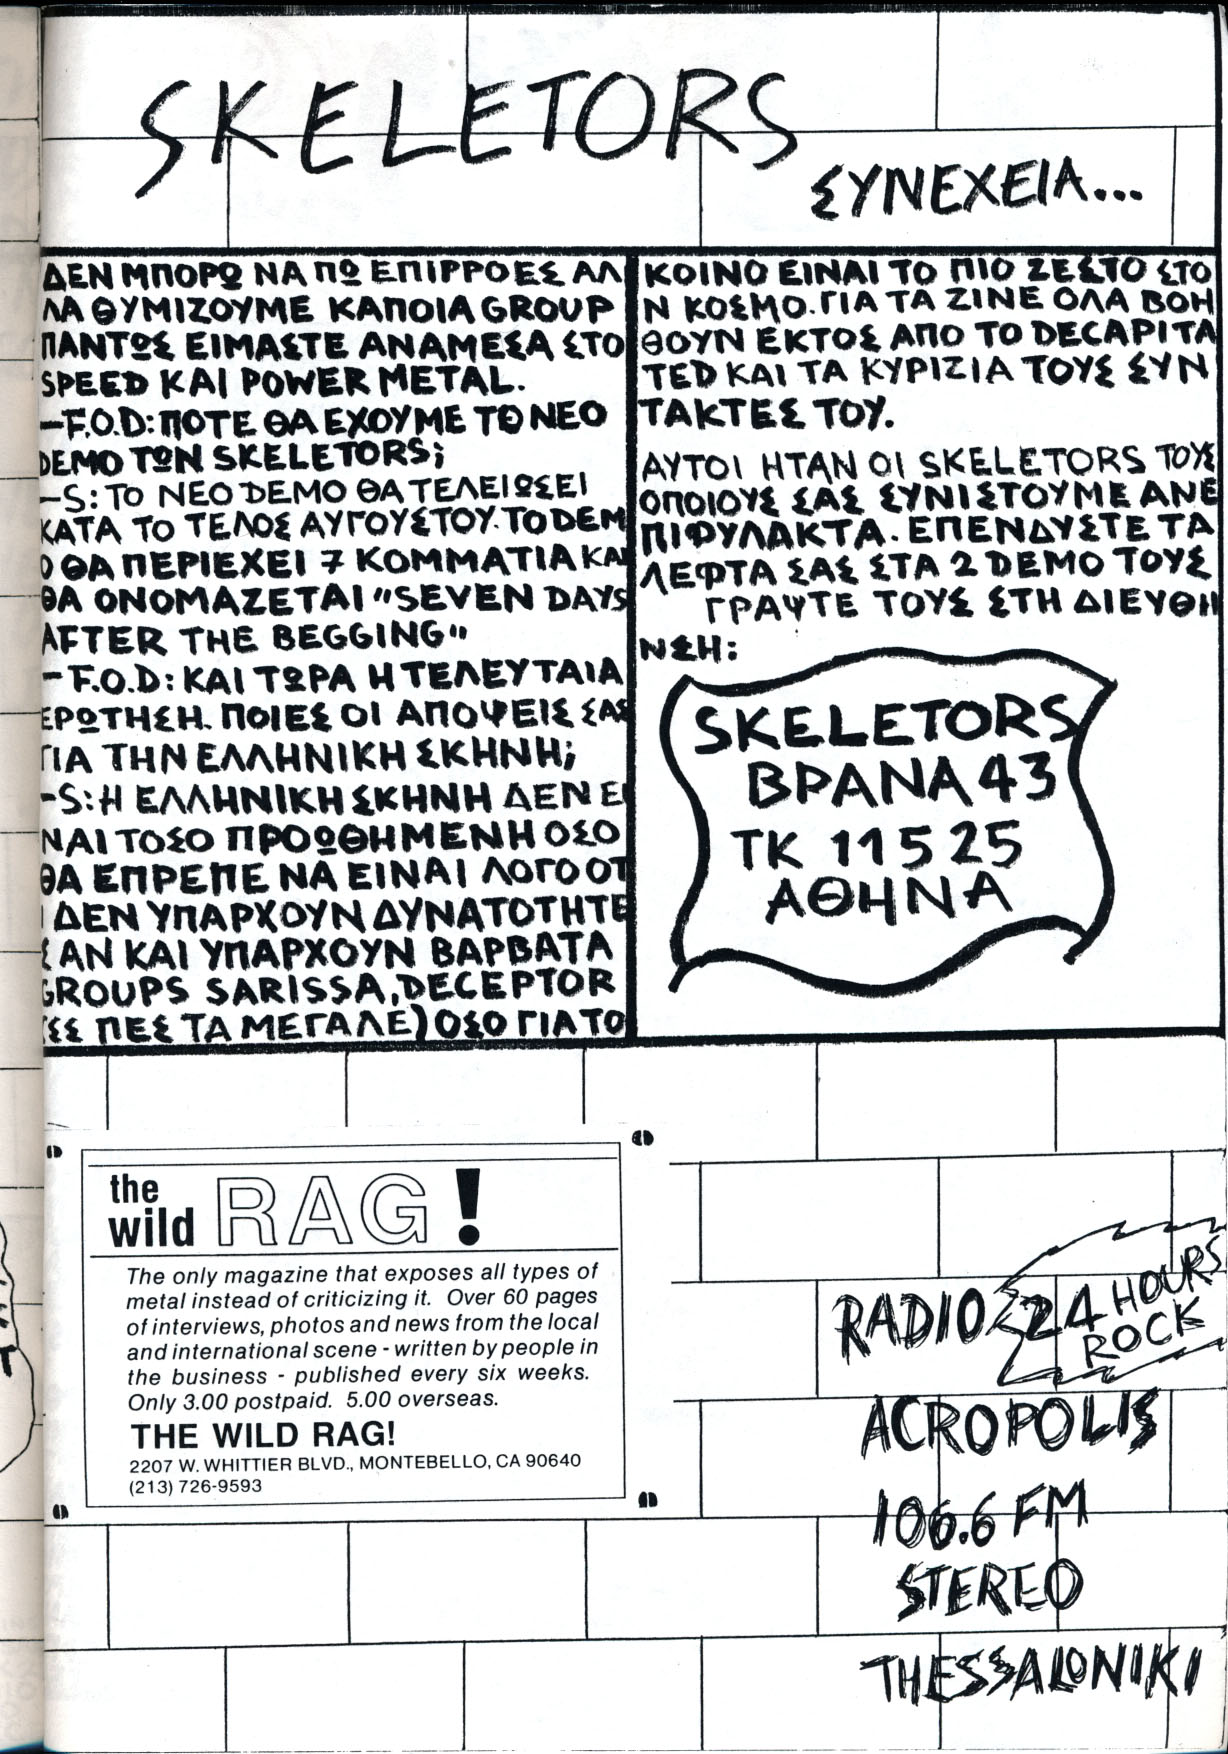 SKELETORS
ΣΥΝΕΧΕΙΑ...
ΔΕΝ ΜΠΟΡΩ ΝΑ ΠΩ ΕΠΙΡΡΟΕΣ ΑΛ
ΛΑ ΘΥΜΙΖΟΥΜΕ ΚΑΠΟΙΑ GROUP
ΠΑΝΤΩΣ ΕΙΜΑΣΤΕ ΑΝΑΜΕΣΑ ΣΤΟ
SPEED ΚΑΙ POWER METAL.
-F.O.D: ΠΟΤΕ ΘΑ ΕΧΟΥΜΕ ΤΟ ΝΕΟ
DEMO ΤΩΝ SKELETORS;
-S: ΤΟ ΝΕΟ DEMO ΘΑ ΤΕΛΕΙΩΣΕΙ
ΚΑΤΑ ΤΟ ΤΕΛΟΣ ΑΥΓΟΥΣΤΟΥ. ΤΟ DEM
O ΘΑ ΠΕΡΙΕΧΕΙ 7 ΚΟΜΜΑΤΙΑ ΚΑΙ
ΘΑ ΟΝΟΜΑΖΕΤΑΙ "SEVEN DAYS
AFTER THE BEGGING"
-F.O.D: ΚΑΙ ΤΩΡΑ Η ΤΕΛΕΥΤΑΙΑ
ΕΡΩΤΗΣΗ. ΠΟΙΕΣ ΟΙ ΑΠΟΨΕΙΣ ΣΑΣ
ΓΙΑ ΤΗΝ ΕΛΛΗΝΙΚΗ ΣΚΗΝΗ;
-S: Η ΕΛΛΗΝΙΚΗ ΣΚΗΝΗ ΔΕΝ ΕΙ
ΝΑΙ ΤΟΣΟ ΠΡΟΩΘΗΜΕΝΗ ΟΣΟ
ΘΑ ΕΠΡΕΠΕ ΝΑ ΕΙΝΑΙ ΛΟΓΟ ΟΤ
Ι ΔΕΝ ΥΠΑΡΧΟΥΝ ΔΥΝΑΤΟΤΗΤΕ
Σ ΑΝ ΚΑΙ ΥΠΑΡΧΟΥΝ ΒΑΡΒΑΤΑ
GROUPS SARISSA, DECEPTOR
ΠΕΣ ΤΑ ΜΕΓΑΛΕ) ΟΣΟ ΓΙΑ ΤΟ
ΚΟΙΝΟ ΕΙΝΑΙ ΤΟ ΠΙΟ ΖΕΣΤΟ ΣΤΟ
Ν ΚΟΣΜΟ. ΓΙΑ ΤΑ ZINE ΟΛΑ ΒΟΗ
ΘΟΥΝ ΕΚΤΟΣ ΑΠΟ ΤΟ DECAPITA
TED ΚΑΙ ΤΑ ΚΥΡΙΖΙΑ ΤΟΥΣ ΣΥΝ
ΤΑΚΤΕΣ ΤΟΥ.
ΑΥΤΟΙ ΗΤΑΝ ΟΙ SKELETORS ΤΟΥΣ
ΟΠΟΙΟΥΣ ΣΑΣ ΣΥΝΙΣΤΟΥΜΕ ΑΝΕ
ΠΙΦΥΛΑΚΤΑ. ΕΠΕΝΔΥΣΤΕ ΤΑ
ΛΕΦΤΑ ΣΑΣ ΣΤΑ 2 DEMO ΤΟΥΣ
ΓΡΑΨΤΕ ΤΟΥΣ ΣΤΗ ΔΙΕΥΘΗ
ΝΣΗ:
SKELETORS
ΒΡΑΝΑ 43
ΤΚ 11525
ΑΘΗΝΑ
the wild RAG!
The only magazine that exposes all types of
metal instead of criticizing it. Over 60 pages
of interviews, photos and news from the local
and international scene - written by people in
the business - published every six weeks.
Only 3.00 postpaid. 5.00 overseas.
THE WILD RAG!
2207 W. WHITTIER BLVD., MONTEBELLO, CA 90640
(213) 726-9593
RADIO 24 HOURS
ROCK
ACROPOLIS
106.6 FM
STEREO
THESSALONIKI